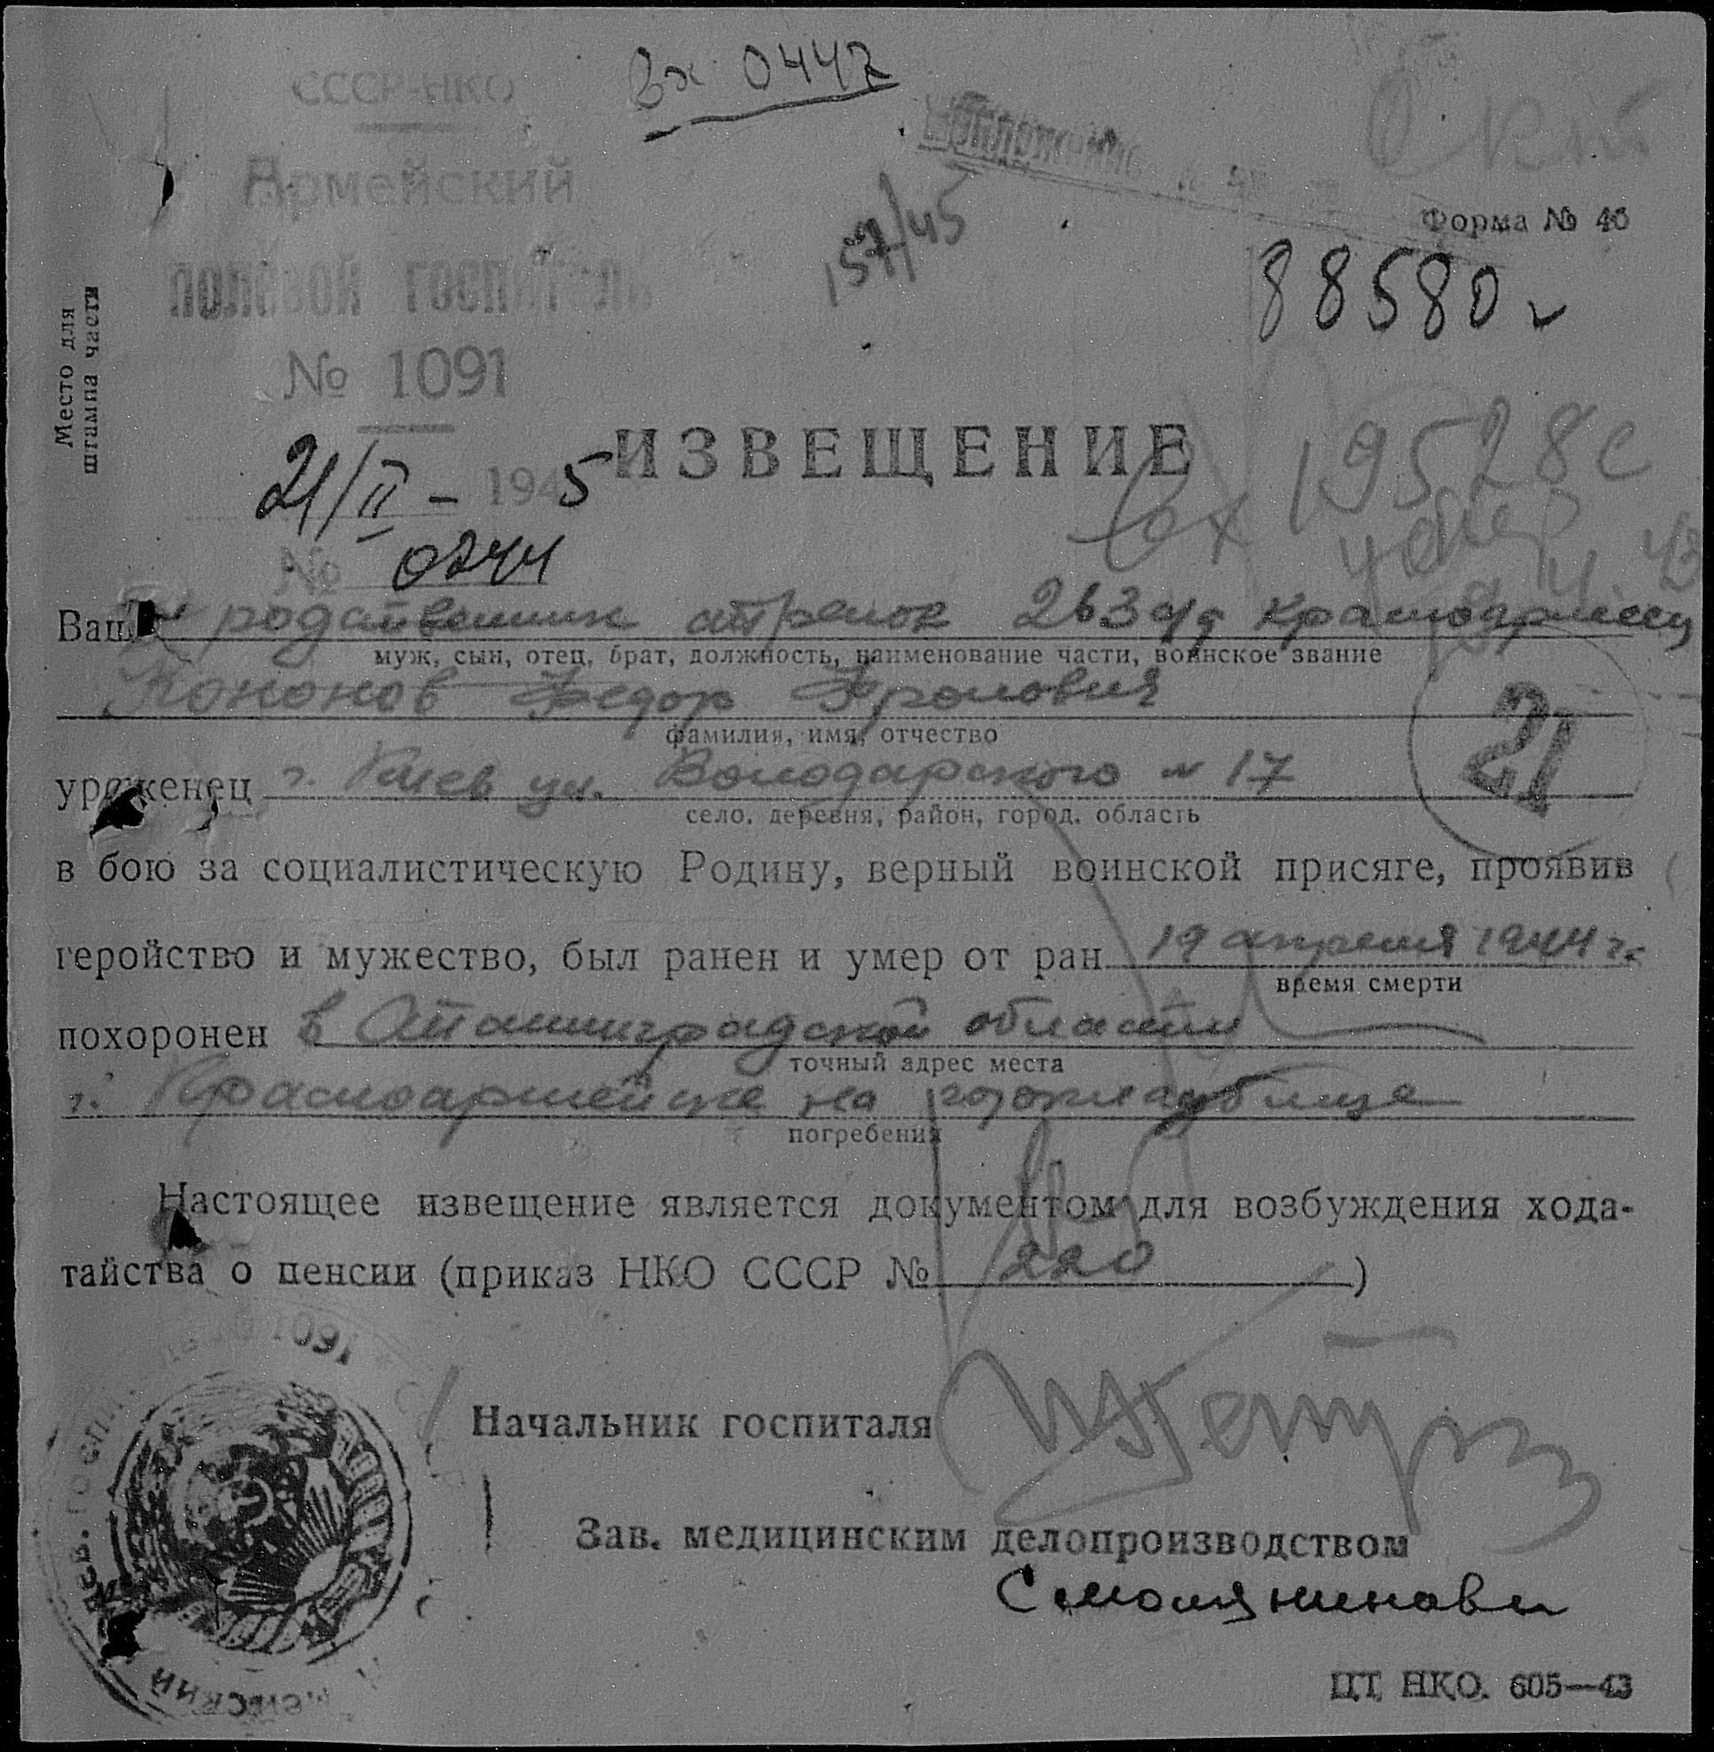 СССР-НКО
Вх 0447
Армейский
157/45
Форма № 46
полевой госпиталь
88580
№ 1091
Место для
штампа части
ИЗВЕЩЕНИЕ
21/II - 1945
Вх 19528с
№ 0244
Ваш родственник стрелок 263 с/д красноармеец
муж, сын, отец, брат, должность, наименование части, воинское звание
Кононов Федор Фролович
фамилия, имя, отчество
21
уроженец г. Киев ул. Володарского № 17
село, деревня, район, город, область
в бою за социалистическую Родину, верный воинской присяге, проявив
геройство и мужество, был ранен и умер от ран 19 апреля 1944 г.
время смерти
похоронен в области
точный адрес места
г. Красноармейске на горкладбище
погребения
Настоящее извещение является документом для возбуждения хода-
тайства о пенсии (приказ НКО СССР № 220 )
1091
Начальник госпиталя
Зав. медицинским делопроизводством
Смолянинова
ЦТ. НКО. 605—43